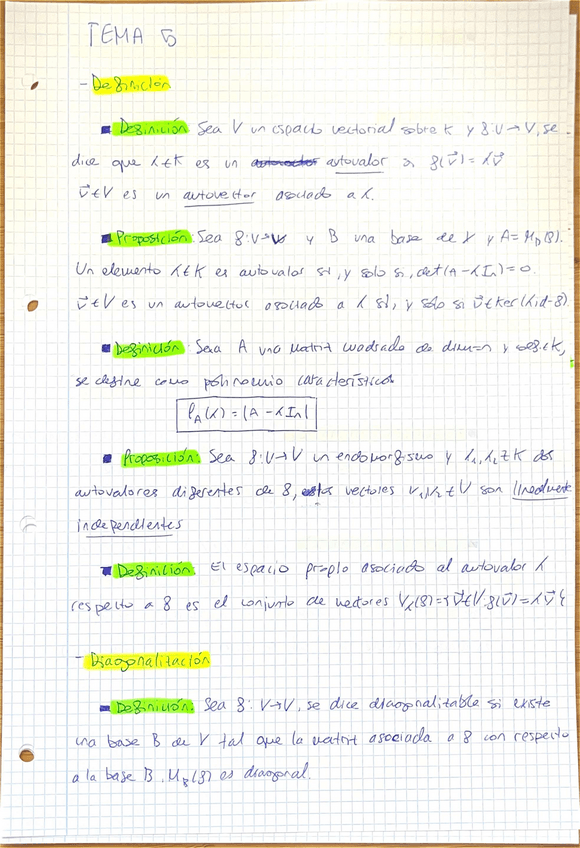 TEMA 5
- Definición
Definición Sea V un espacio vectorial sobre K y f: V → V, se
dice que λ ∈ K es un autovalor si f(v⃗) = λv⃗
v⃗ ∈ V es un autovector asociado a λ.
Proposición: Sea f: V→V y B una base de V y A = M_B(f).
Un elemento λ ∈ K es autovalor si, y solo si, det(A - λI_n) = 0
v⃗ ∈ V es un autovector asociado a λ si, y solo si v⃗ ∈ ker(λid - f)
Definición: Sea A una matriz cuadrada de dimen=n y
se define como polinomio característico
P_A(λ) = |A - λI_n|
Proposición: Sea f: V→V un endomorfismo y λ₁, λ₂ ∈ K dos
autovalores diferentes de f, los vectores v₁, v₂ ∈ V son linealmente
independientes
Definición: El espacio propio asociado al autovalor λ
respecto a f es el conjunto de vectores V_λ(f) = {v⃗ ∈ V: f(v⃗) = λv⃗}
- Diagonalización
Definición: Sea f: V→V, se dice diagonalizable si existe
una base B de V tal que la matriz asociada a f con respecto
a la base B, M_B(f) es diagonal.